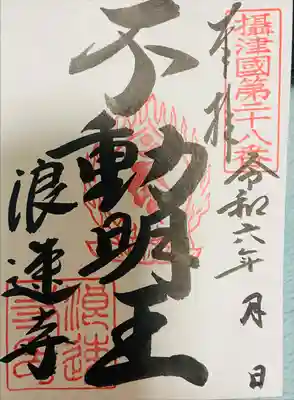 攝津國第二十八番
奉拝
令和六年 月 日
不動明王
浪速寺
浪速寺印